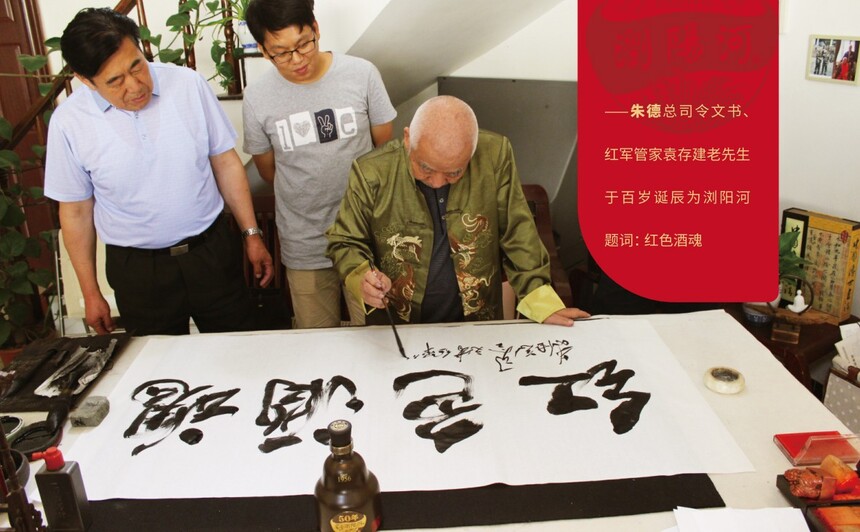 浏阳河
——朱德总司令文书、
红军管家袁存建老先生
于百岁诞辰为浏阳河
题词：红色酒魂
红色酒魂
50年